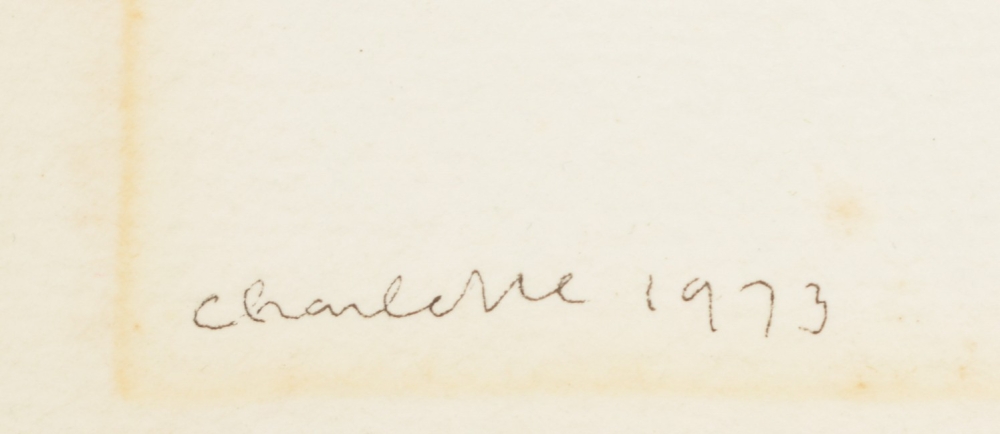 Charlotte 1973